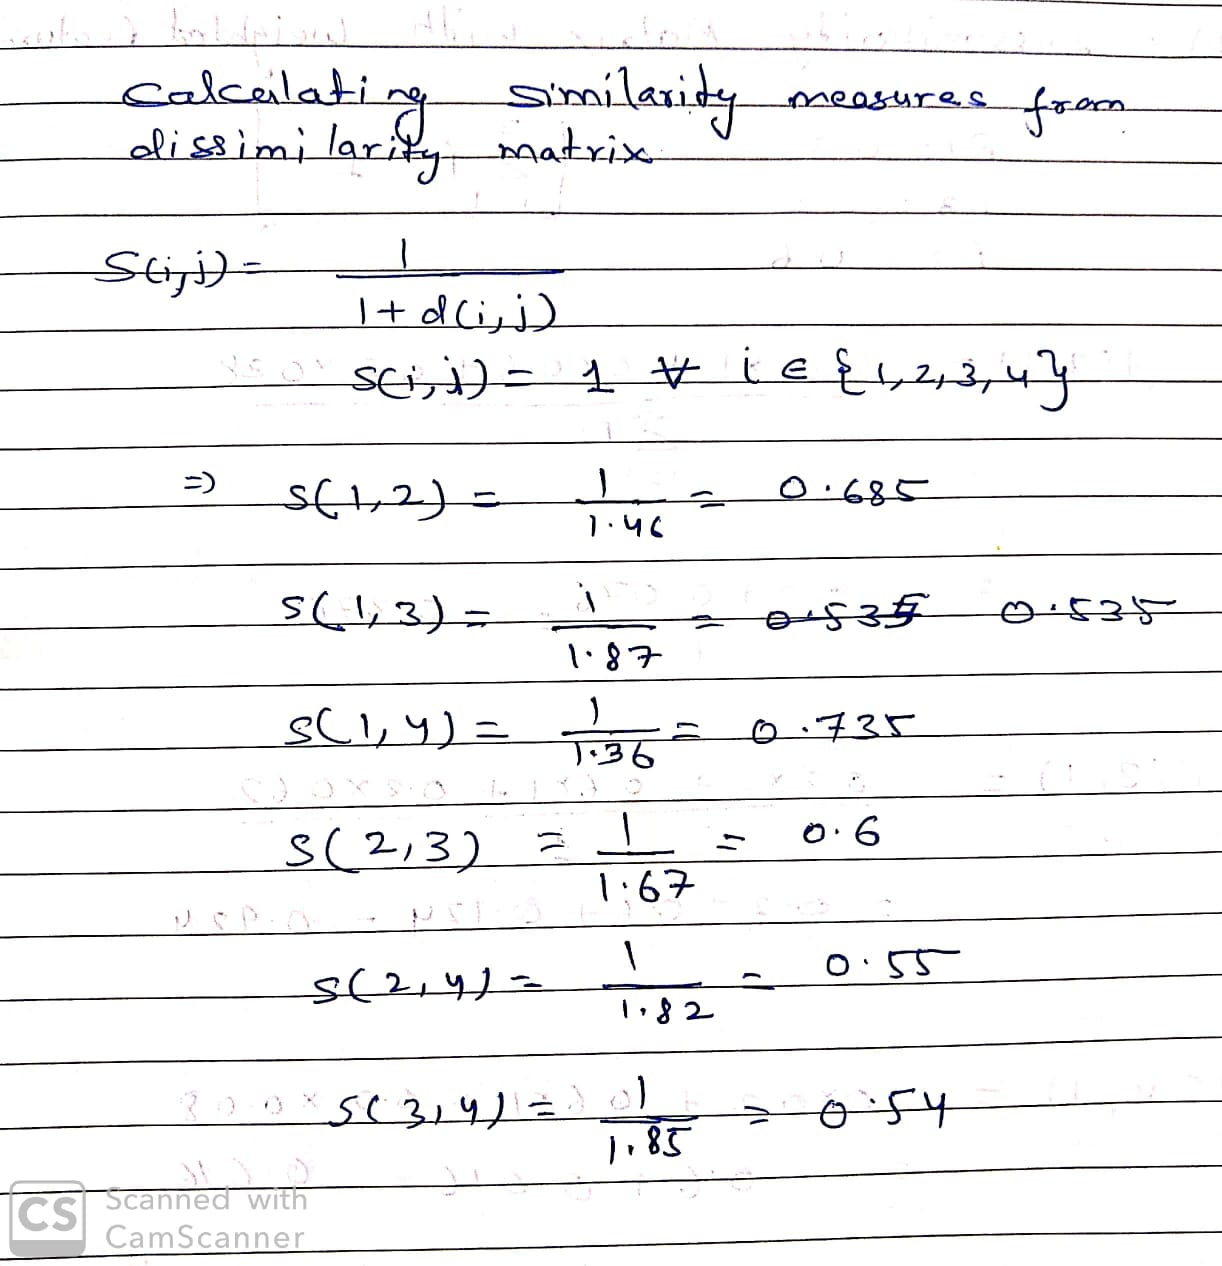 Calculating similarity measures from
dissimilarity matrix
S(i,j) = 1 / 1+d(i,j)
s(i,j) = 1 ∀ i ∈ {1,2,3,4}
=) s(1,2) = 1 / 1.46 = 0.685
s(1,3) = 1 / 1.87 = 0.535 0.535
s(1,4) = 1 / 1.36 = 0.735
s(2,3) = 1 / 1.67 = 0.6
s(2,4) = 1 / 1.82 = 0.55
s(3,4) = 1 / 1.85 = 0.54
CS Scanned with
CamScanner